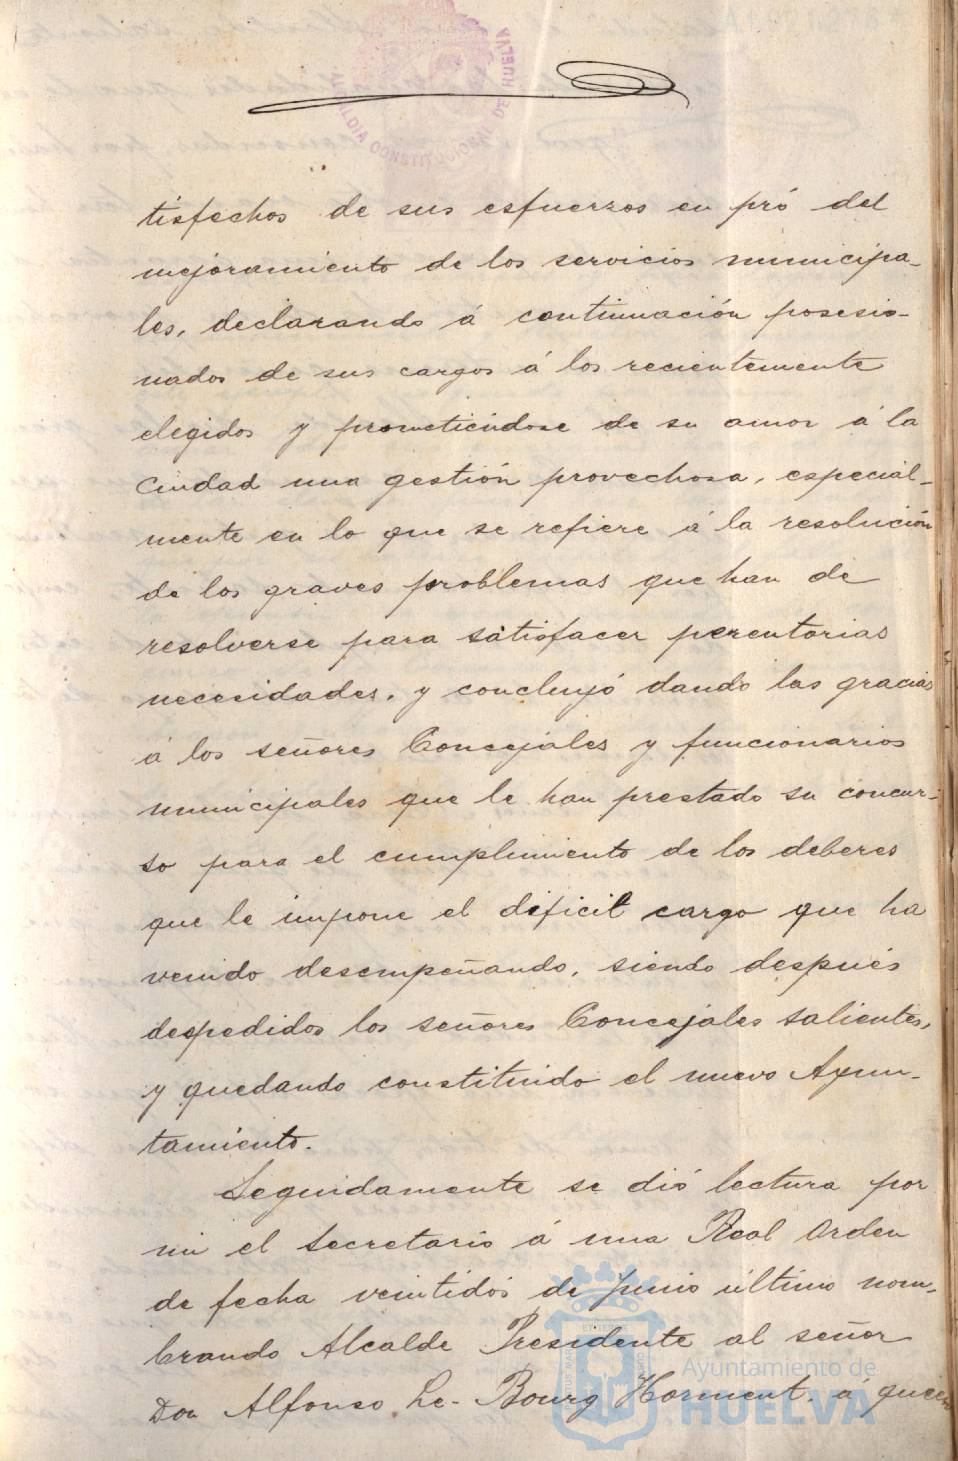 ALCALDIA CONSTITUCIONAL DE HUELVA
tisfechos de sus esfuerzos en pró del
mejoramiento de los servicios municipa-
les, declarando á continuación posesio-
nados de sus cargos á los recientemente
elegidos y prometiéndose de su amor á la
Ciudad una gestión provechosa, especial-
mente en lo que se refiere á la resolución
de los graves problemas que han de
resolverse para satisfacer perentorias
necesidades, y concluyó dando las gracias
á los señores Concejales y funcionarios
municipales que le han prestado su concur-
so para el cumplimiento de los deberes
que le impone el dificil cargo que ha
venido desempeñando, siendo después
despedidos los señores Concejales salientes,
y quedando constituido el nuevo Ayun-
tamiento.
Seguidamente se dió lectura por
mi el Secretario á una Real Orden
de fecha veintidós de Junio último nom-
brando Alcalde Presidente al señor
Don Alfonso Le-Bourg Horment, á quien
Ayuntamiento de
HUELVA